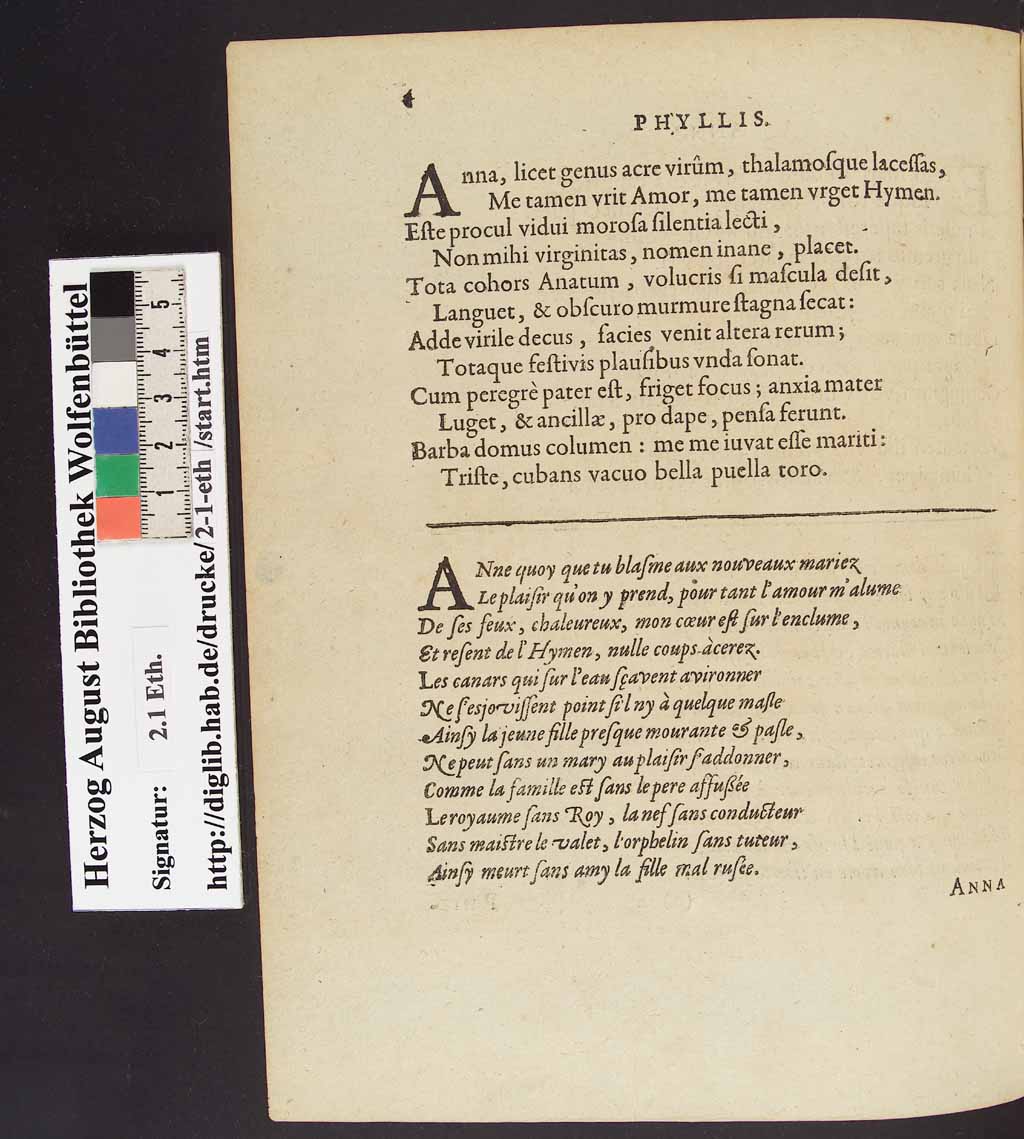 4
PHYLLIS.
Anna, licet genus acre virûm, thalamoſque laceſſas,
Me tamen vrit Amor, me tamen vrget Hymen.
Eſte procul vidui moroſa ſilentia lecti,
Non mihi virginitas, nomen inane, placet.
Tota cohors Anatum, volucris ſi maſcula deſit,
Languet, & obſcuro murmure ſtagna ſecat:
Adde virile decus, facies venit altera rerum;
Totaque feſtivis plauſibus vnda ſonat.
Cum peregrè pater eſt, friget focus; anxia mater
Luget, & ancillæ, pro dape, penſa ferunt.
Barba domus columen: me me iuvat eſſe mariti:
Triſte, cubans vacuo bella puella toro.
ANne quoy que tu blaſme aux nouveaux mariez
Le plaiſir qu'on y prend, pour tant l'amour m'alume
De ſes feux, chaleureux, mon cœur eſt ſur l'enclume,
Et reſent de l'Hymen, nulle coups àcerez.
Les canars qui ſur l'eau ſçavent avironner
Ne ſ'esjoviſſent point ſ'il ny à quelque maſle
Ainſy la jeune fille preſque mourante & paſle,
Ne peut ſans un mary au plaiſir ſ'addonner,
Comme la famille eſt ſans le pere affuſſée
Le royaume ſans Roy, la nef ſans conducteur
Sans maiſtre le valet, l'orphelin ſans tuteur,
Ainſy meurt ſans amy la fille mal ruſée.
ANNA
Herzog August Bibliothek Wolfenbüttel
Signatur: 2.1 Eth.
http://diglib.hab.de/drucke/2-1-eth /start.htm
1 2 3 4 5